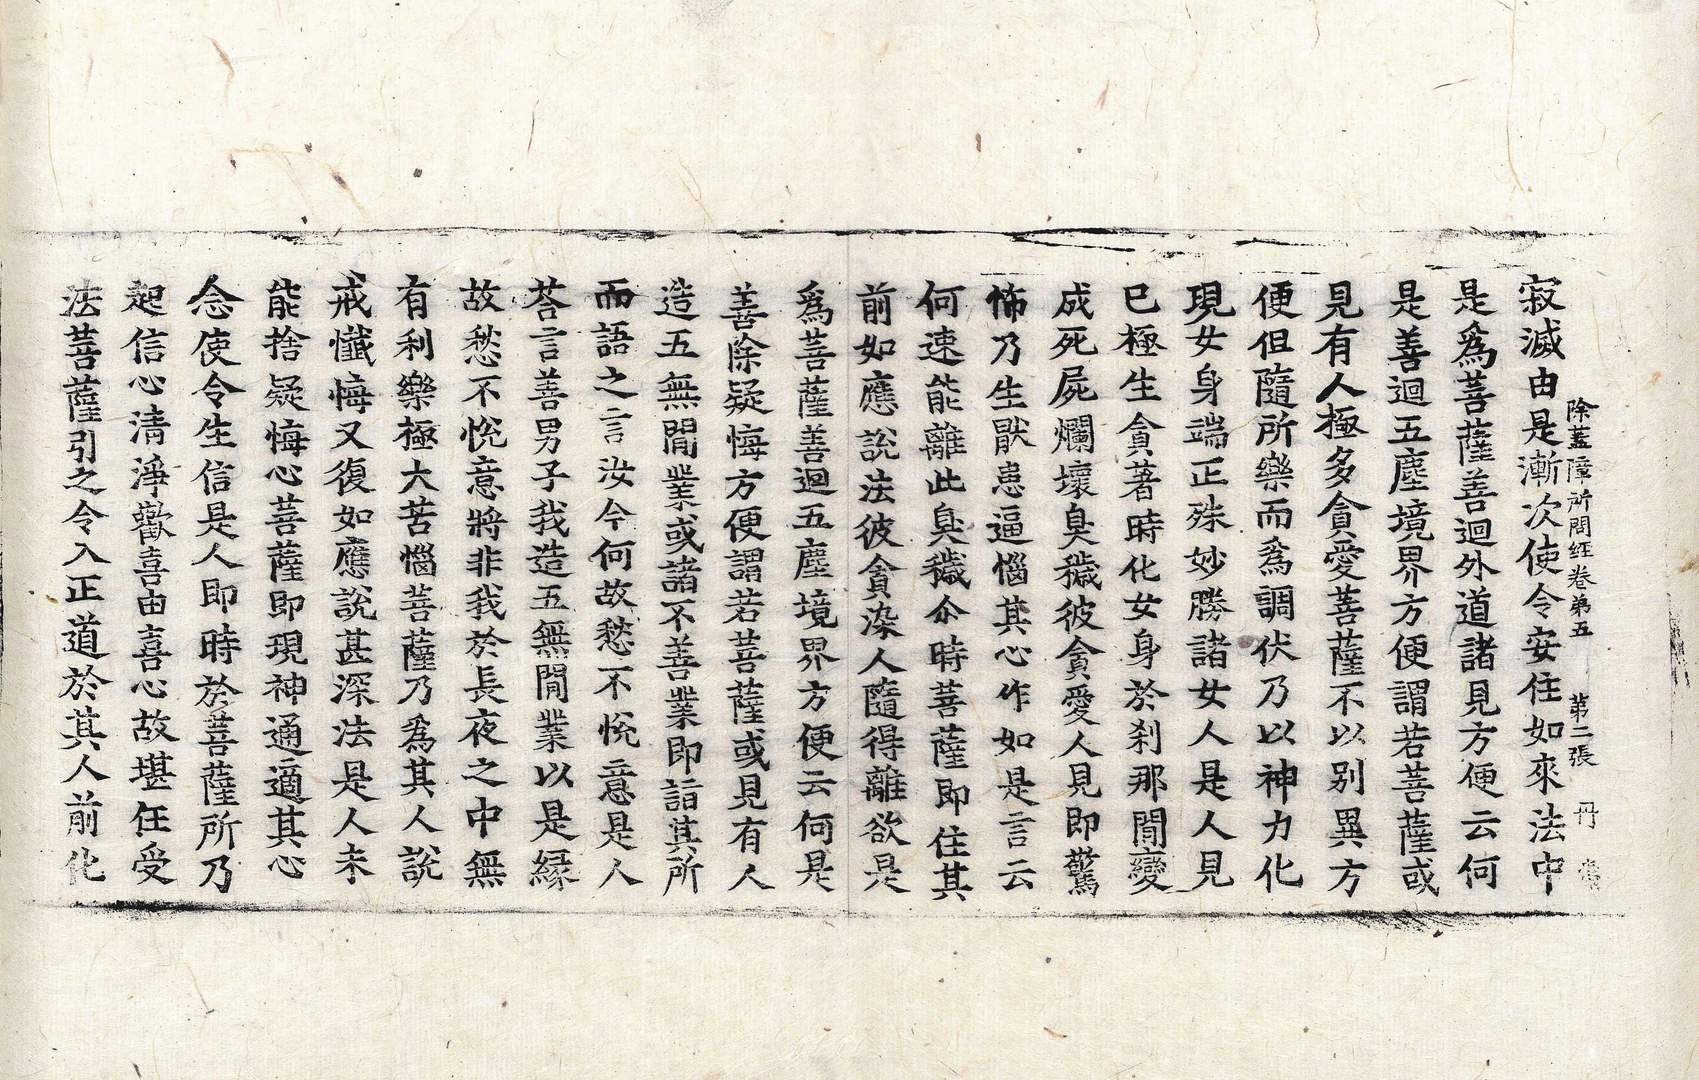 除蓋障所問經卷第五 第二張 丹
寂滅由是漸次使令安住如來法中
是爲菩薩善迴外道諸見方便云何
是善迴五塵境界方便謂若菩薩或
見有人極多貪愛菩薩不以別異方
便但隨所樂而爲調伏乃以神力化
現女身端正殊妙勝諸女人是人見
已極生貪著時化女身於刹那間變
成死屍爛壞臭穢彼貪愛人見即驚
怖乃生厭患逼惱其心作如是言云
何速能離此臭穢尒時菩薩即住其
前如應說法彼貪染人隨得離欲是
爲菩薩善迴五塵境界方便云何是
善除疑悔方便謂若菩薩或見有人
造五無間業或諸不善業即詣其所
而語之言汝今何故愁不悅意是人
荅言善男子我造五無間業以是緣
故愁不悅意將非我於長夜之中無
有利樂極大苦惱菩薩乃爲其人說
戒懺悔又復如應說甚深法是人未
能捨疑悔心菩薩即現神通適其心
念使令生信是人即時於菩薩所乃
起信心清淨歡喜由喜心故堪任受
法菩薩引之令入正道於其人前化